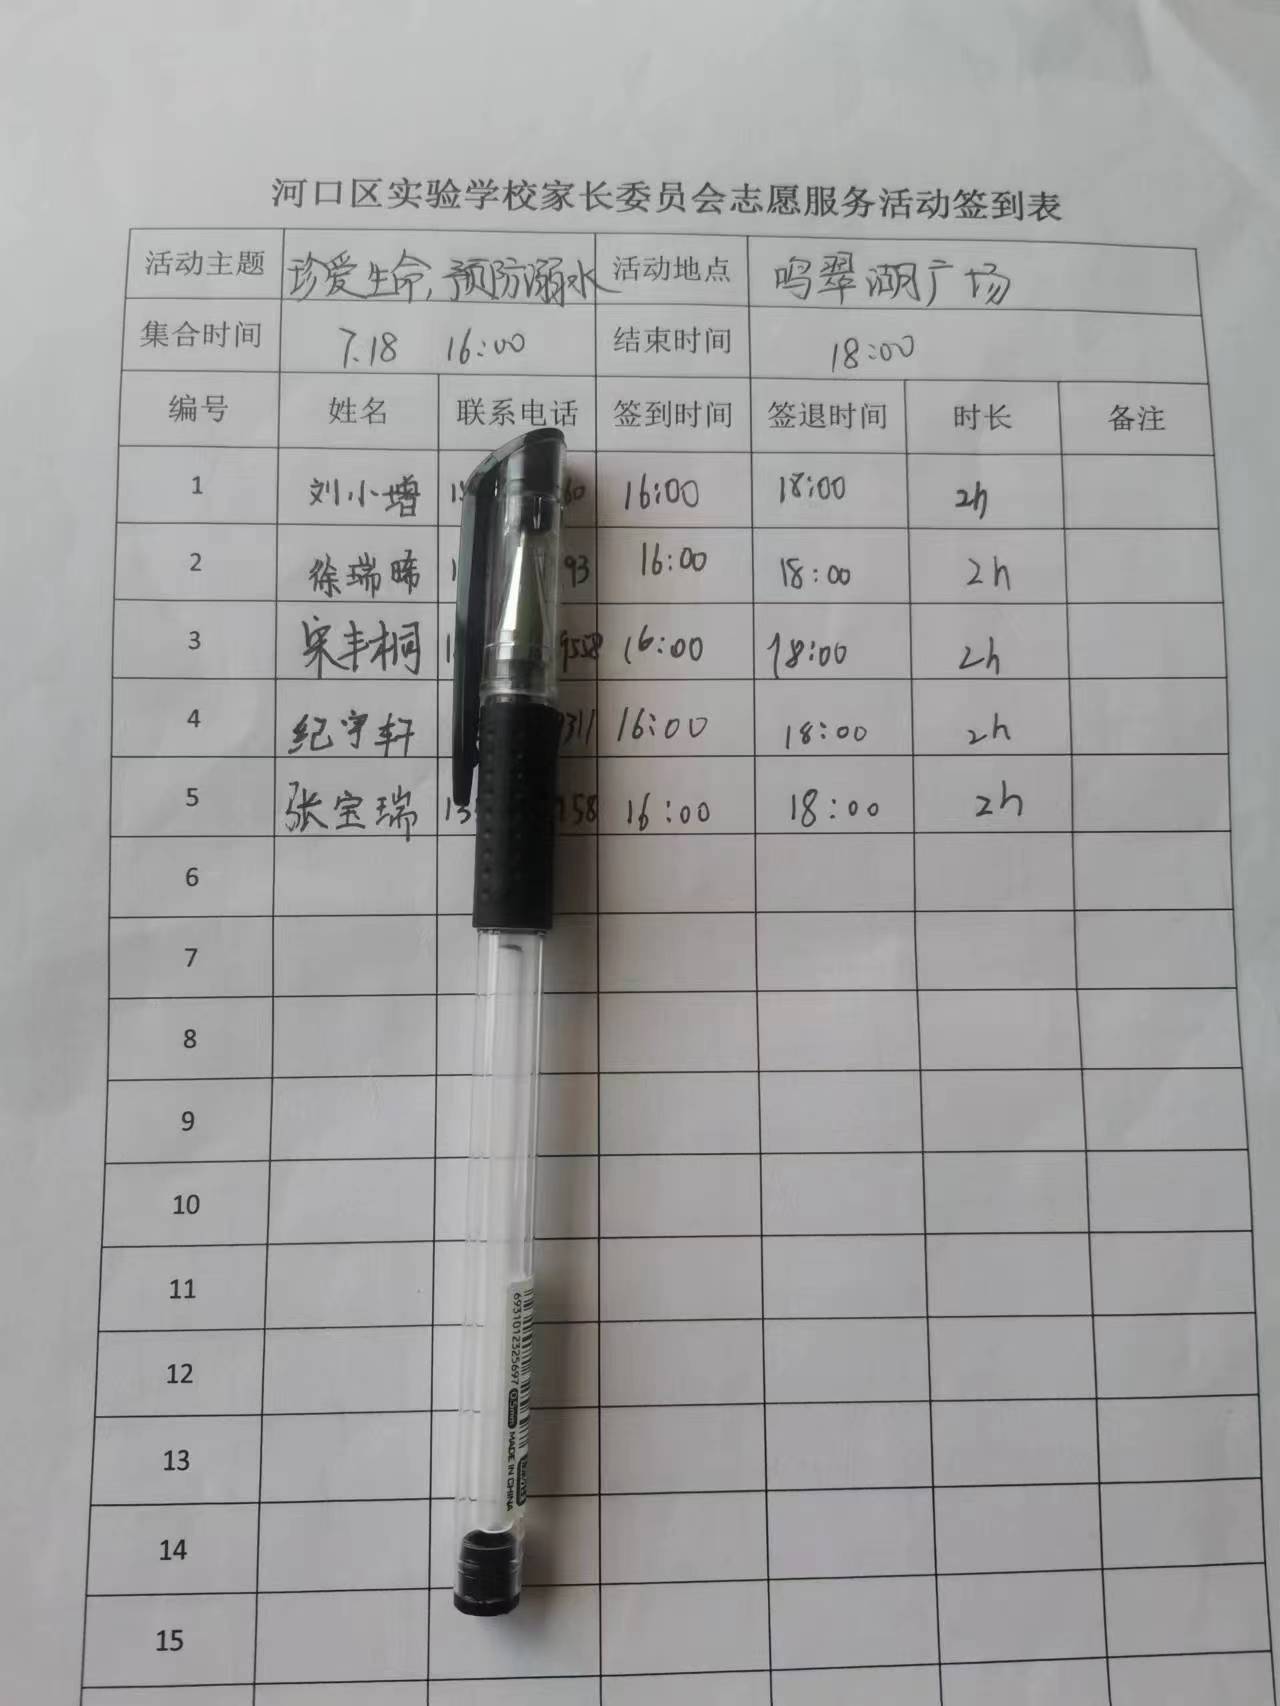 河口区实验学校家长委员会志愿服务活动签到表
活动主题 珍爱生命,预防溺水 活动地点 鸣翠湖广场
集合时间 7.18 16:00 结束时间 18:00
编号 姓名 联系电话 签到时间 签退时间 时长 备注
1 刘小增 60 16:00 18:00 2h
2 徐瑞晞 93 16:00 18:00 2h
3 宋丰桐 9558 16:00 18:00 2h
4 纪宇轩 9311 16:00 18:00 2h
5 张宝瑞 13 758 16:00 18:00 2h
6
7
8
9
10
11
12
13
14
15
6931012325697 0.5mm MADE IN CHINA